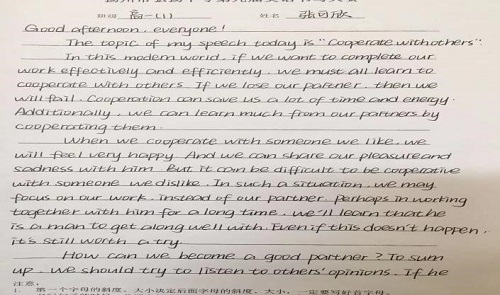 班级 高一(1) 姓名
Good afternoon, everyone!
The topic of my speech today is "Cooperate with others".
In this modern world, if we want to complete our
work effectively and efficiently, we must all learn to
cooperate with others. If we lose our partner, then we
will fail. Cooperation can save us a lot of time and energy.
Additionally, we can learn much from our partners by
cooperating them.
When we cooperate with someone we like, we
will feel very happy. And we can share our pleasure and
sadness with him. But it can be difficult to be cooperative
with someone we dislike. In such a situation, we may
focus on our work, instead of our partner. Perhaps in working
together with him for a long time, we'll learn that he
is a man to get along well with. Even if this doesn't happen,
it's still worth a try.
How can we become a good partner? To sum
up, we should try to listen to others' opinions. If he
注意:
1. 第一个字母的斜度、大小决定后面字母的斜度、大小,一定要写好首字母。